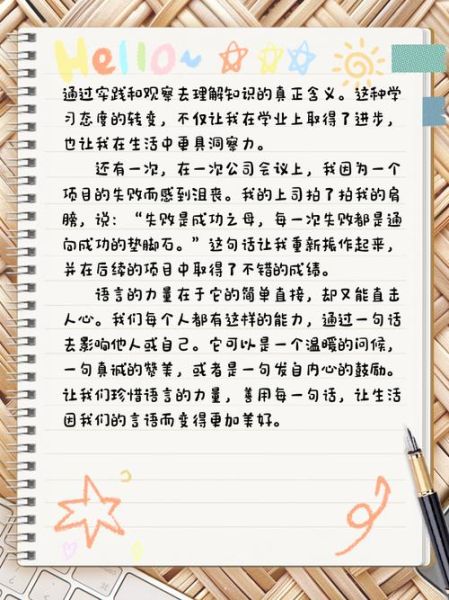 Hello~
通过实践和观察去理解知识的真正含义。这种学
习态度的转变，不仅让我在学业上取得了进步，
也让我在生活中更具洞察力。
还有一次，在一次公司会议上，我因为一个
项目的失败而感到沮丧。我的上司拍了拍我的肩
膀，说：“失败是成功之母，每一次失败都是通
向成功的垫脚石。”这句话让我重新振作起来，
并在后续的项目中取得了不错的成绩。
语言的力量在于它的简单直接，却又能直击
人心。我们每个人都有这样的能力，通过一句话
去影响他人或自己。它可以是一个温暖的问候，
一句真诚的赞美，或者是一句发自内心的鼓励。
让我们珍惜语言的力量，善用每一句话，让生活
因我们的言语而变得更加美好。